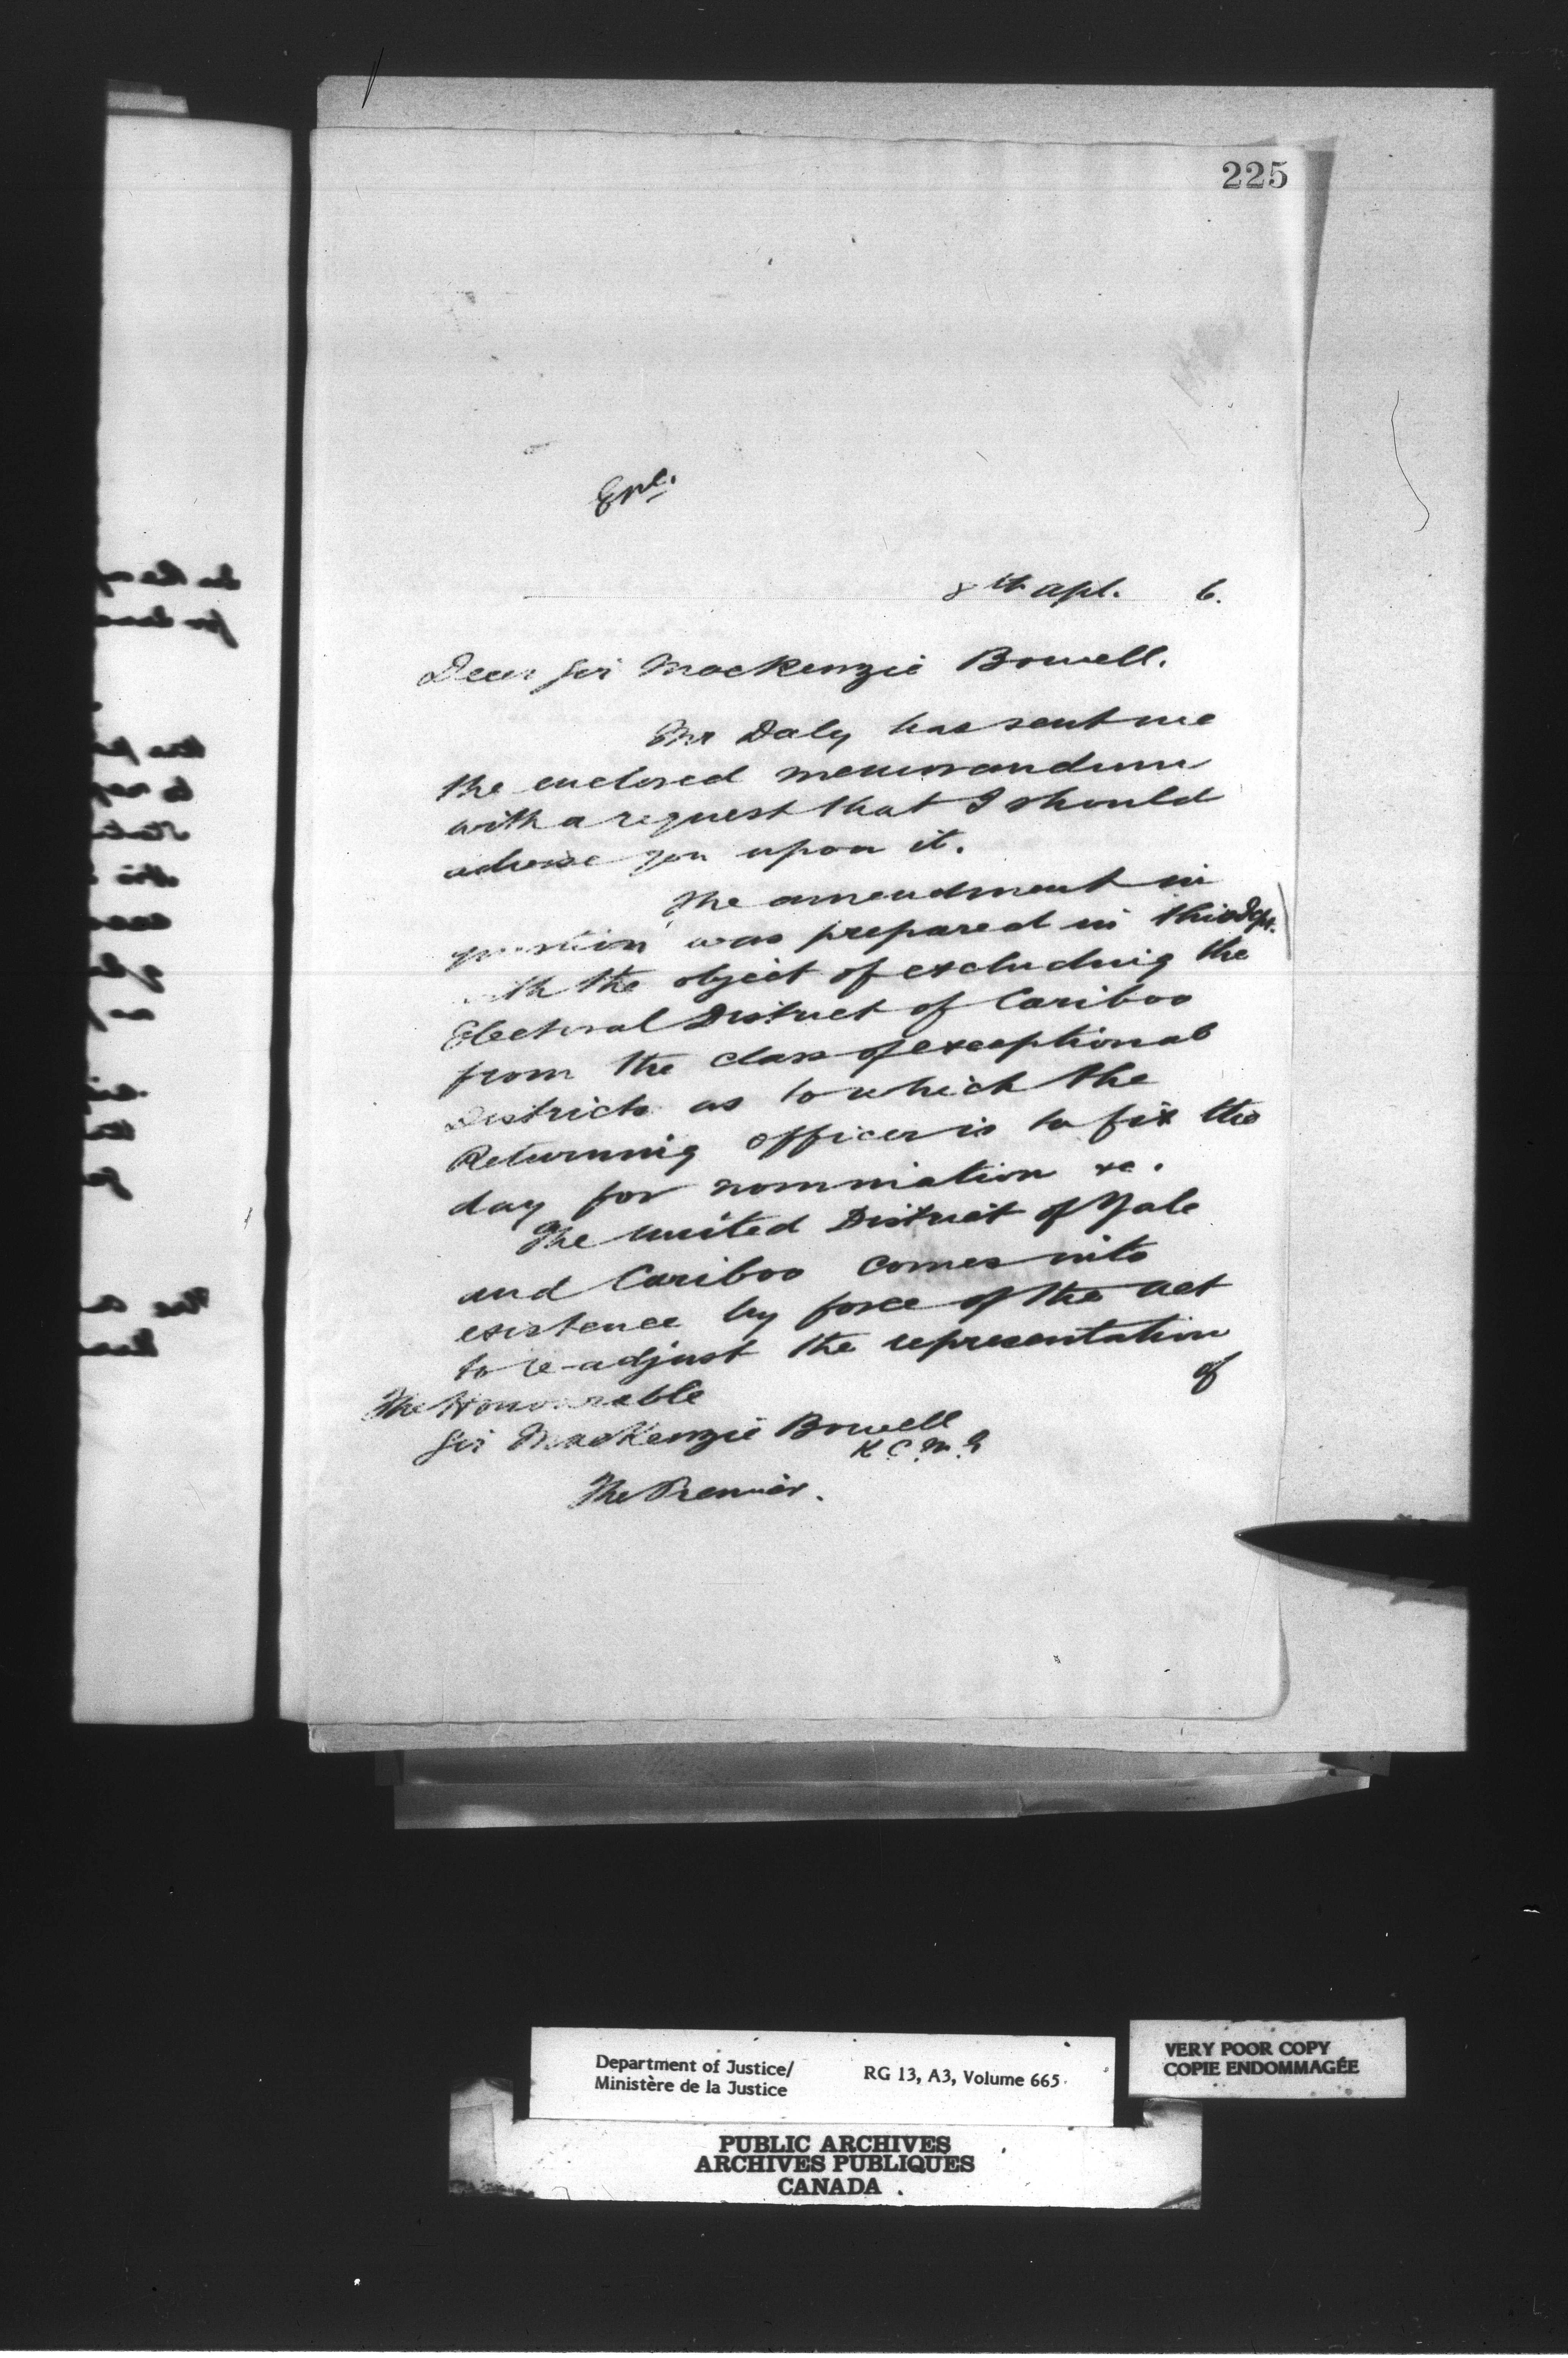 225
Enc.
8th Apl. 6.
Dear Sir MacKenzie Bowell.
Mr Daly has sent me
the enclosed memorandum
with a request that I should
advise you upon it.
The amendment in
question was prepared in this Dept.
with the object of excluding the
Electoral District of Cariboo
from the class of exceptional
Districts as to which the
Returning Officer is to fix the
day for nomination &c.
The united District of Yale
and Cariboo comes into
existence by force of the Act
to re-adjust the representation
of
The Honourable
Sir MacKenzie Bowell
K.C.M.G
The Premier.
Department of Justice/
Ministère de la Justice
RG 13, A3, Volume 665
VERY POOR COPY
COPIE ENDOMMAGÉE
PUBLIC ARCHIVES
ARCHIVES PUBLIQUES
CANADA